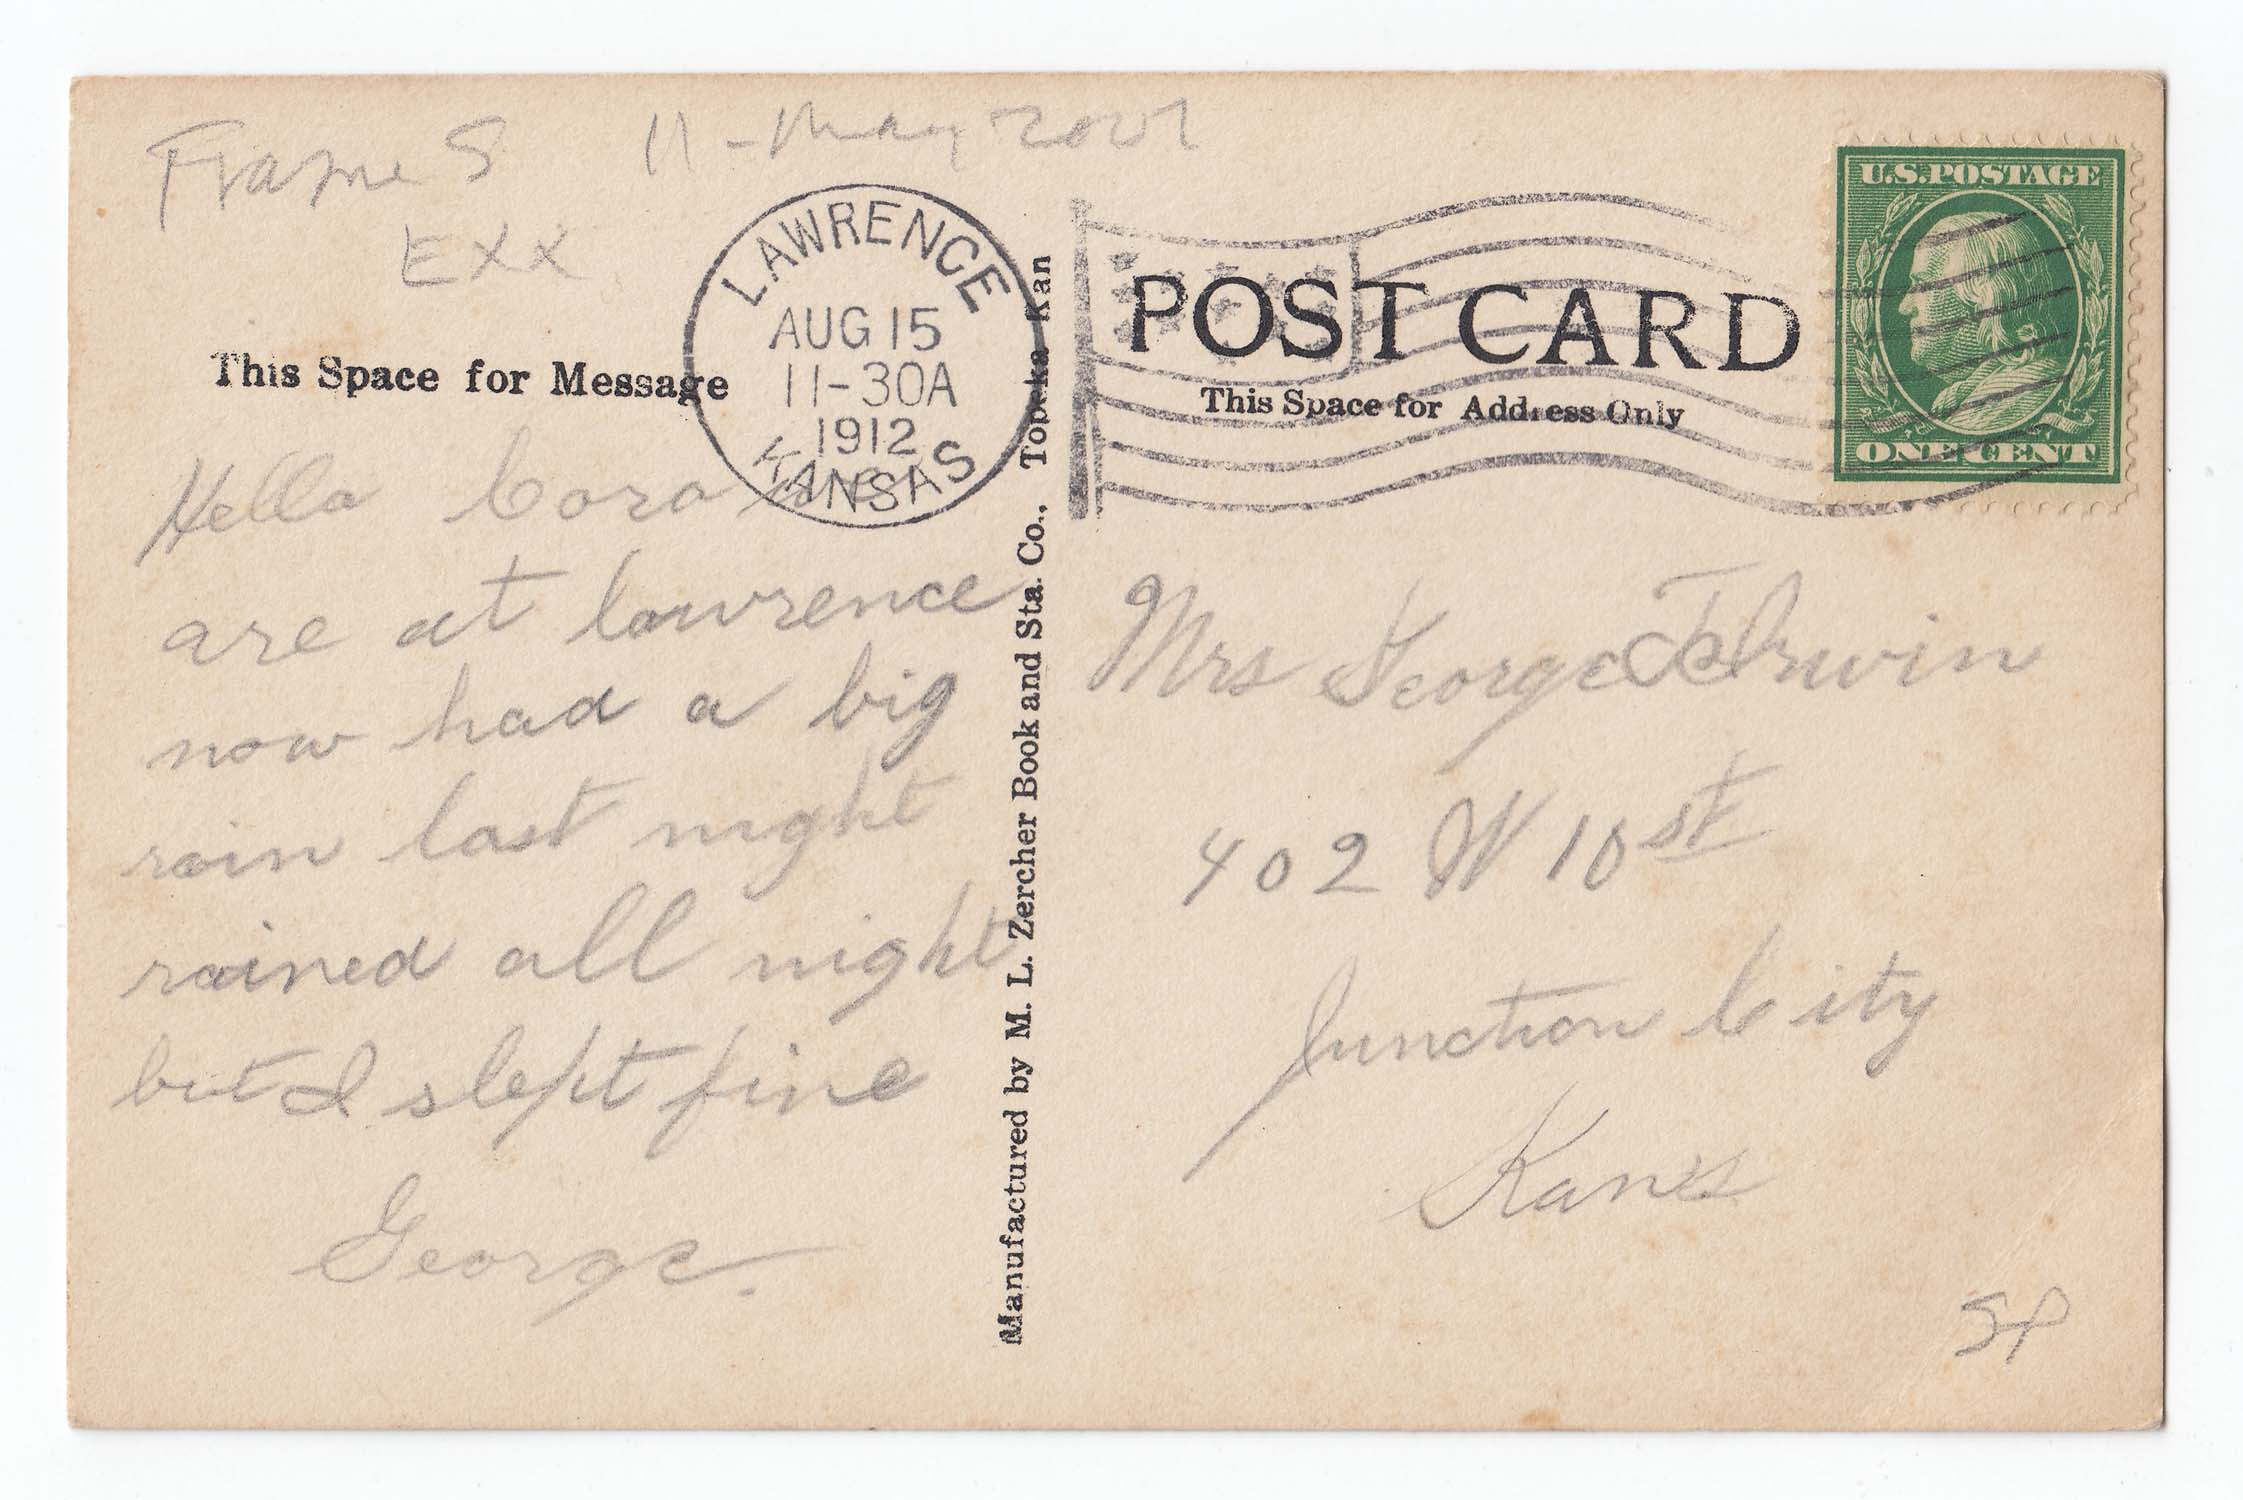 Frame S 11 - May 2007
EXX
LAWRENCE
AUG 15
11-30A
1912
KANSAS
U.S. POSTAGE
ONE CENT
POST CARD
This Space for Address Only
This Space for Message
Hello Cora we
are at lawrence
now had a big
rain last night
rained all night
but I slept fine
George.
Manufactured by M. L. Zercher Book and Sta. Co., Topeka Kan
Mrs George Irwin
402 W 10st
Junction City
Kans
SP